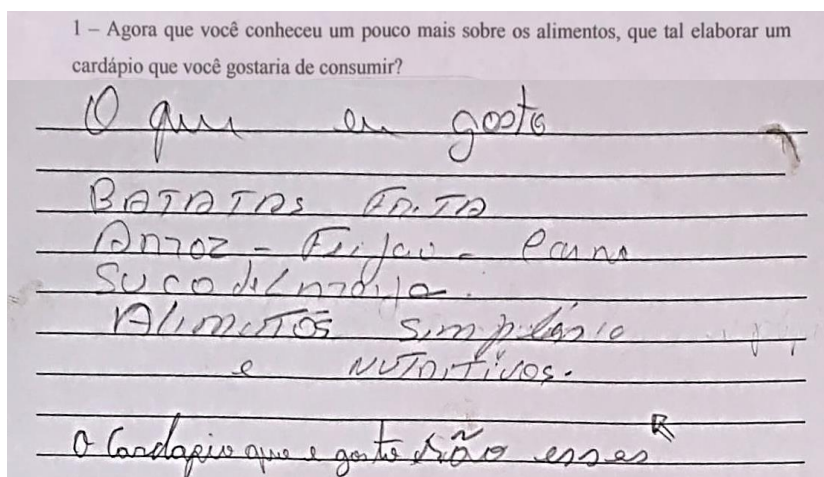 1 – Agora que você conheceu um pouco mais sobre os alimentos, que tal elaborar um
cardápio que você gostaria de consumir?
O que eu gosto
BATATAS FRITA
Arroz - Feijao - carne
Suco de laranja.
Alimentos
e NUTRITIVOS.
O Cardapio que e gosto são esses